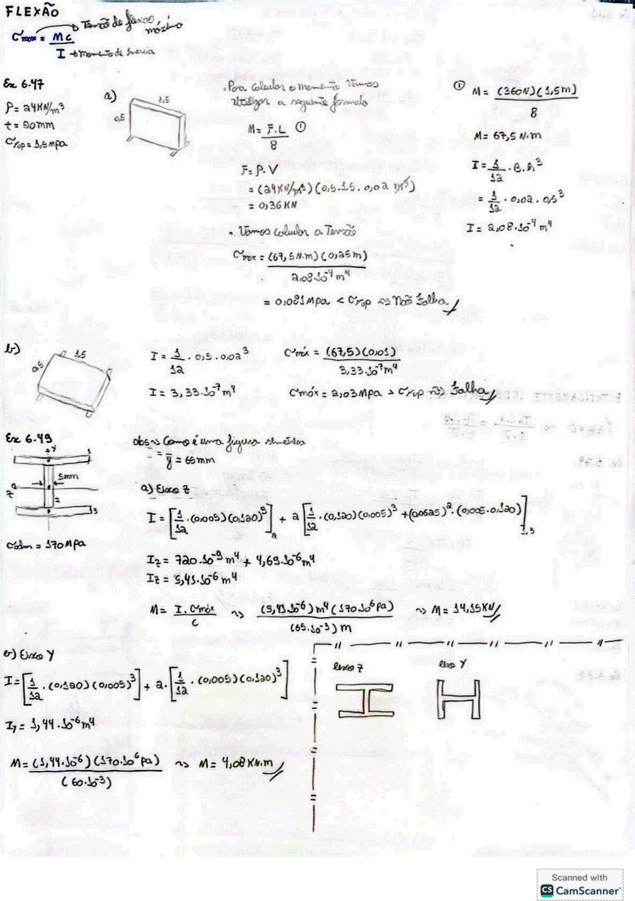 FLEXÃO
σmax = Mc / I
→ Tensão de flexão máximo
→ Momento de Inercia
Ex 6.47
ρ = 24KN/m³
t = 20mm
σrup = 1,5mpa
a)
1,5
0,5
. Para calcular o momento Vamos
Utilizar a seguinte formula
M = F.L / 8 ①
F = ρ.V
= (24KN/m³)(0,5.1,5.0,02 m³)
= 0,36KN
. Vamos calcular a Tensão
σmax = (67,5N.m)(0,25m) / 2,08.10⁻⁴ m⁴
= 0,081Mpa < σrup => Não falha
① M = (360N)(1,5m) / 8
M = 67,5 N.m
I = 1/12 . b.h³
= 1/12 . 0,02.0,5³
I = 2,08.10⁻⁴ m⁴
b)
0,5
1,5
I = 1/12 . 0,5.0,02³
I = 3,33.10⁻⁷ m⁴
σmáx = (67,5)(0,01) / 3,33.10⁻⁷m⁴
σmáx = 2,03Mpa > σrup => Falha
Ex 6.49
Y
1
5mm
Z
2
3
σadm = 170Mpa
obs → Como é uma figura simétrica
ȳ = 65mm
a) Eixo Z
I = [1/12 . (0,005)(0,120)³]₂ + 2[1/12 . (0,120)(0,005)³ + (0,0625)² . (0,005.0,120)]₁,₃
Iz = 720.10⁻⁹ m⁴ + 4,69.10⁻⁶m⁴
Iz = 5,41.10⁻⁶ m⁴
M = I.σmáx / c → (5,41.10⁻⁶)m⁴(170.10⁶pa) / (65.10⁻³)m → M = 14,15KN
b) Eixo Y
I = [1/12 . (0,120)(0,005)³] + 2.[1/12 . (0,005)(0,120)³]
Iy = 1,44.10⁻⁶m⁴
M = (1,44.10⁻⁶)(170.10⁶pa) / (60.10⁻³) → M = 4,08KN.m
eixo Z
eixo Y
Scanned with
CS CamScanner